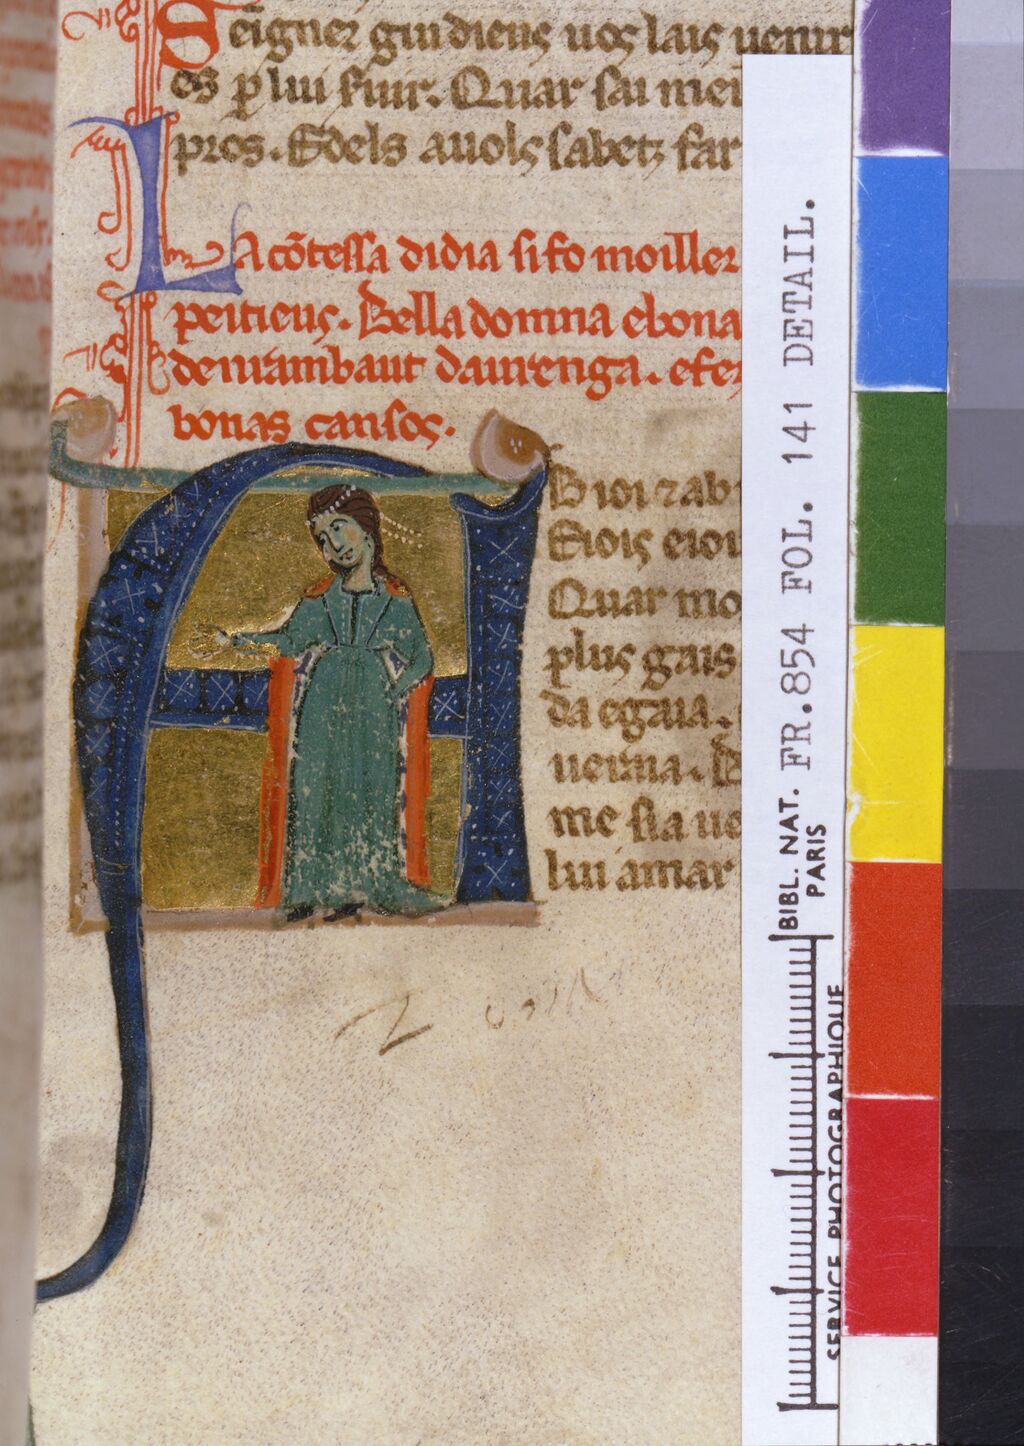 Seigner gui dieus uos lais uenir
es p̲ lui fuir. Quar sai mei
pros. Edels auols sabetz far
LA cõtessa didia si fo moiller
peitieus. Bella domna ebona
deniambaut daurenga. efe
bonas cansos.
A
Bioi ⁊ ab
Eiois eioi
Quar mo
plus gais
da egaia.
uerma.
me sia ue
lui amar
BIBL. NAT. FR.854 FOL. 141 DETAIL.
PARIS
SERVICE PHOTOGRAPHIQUE